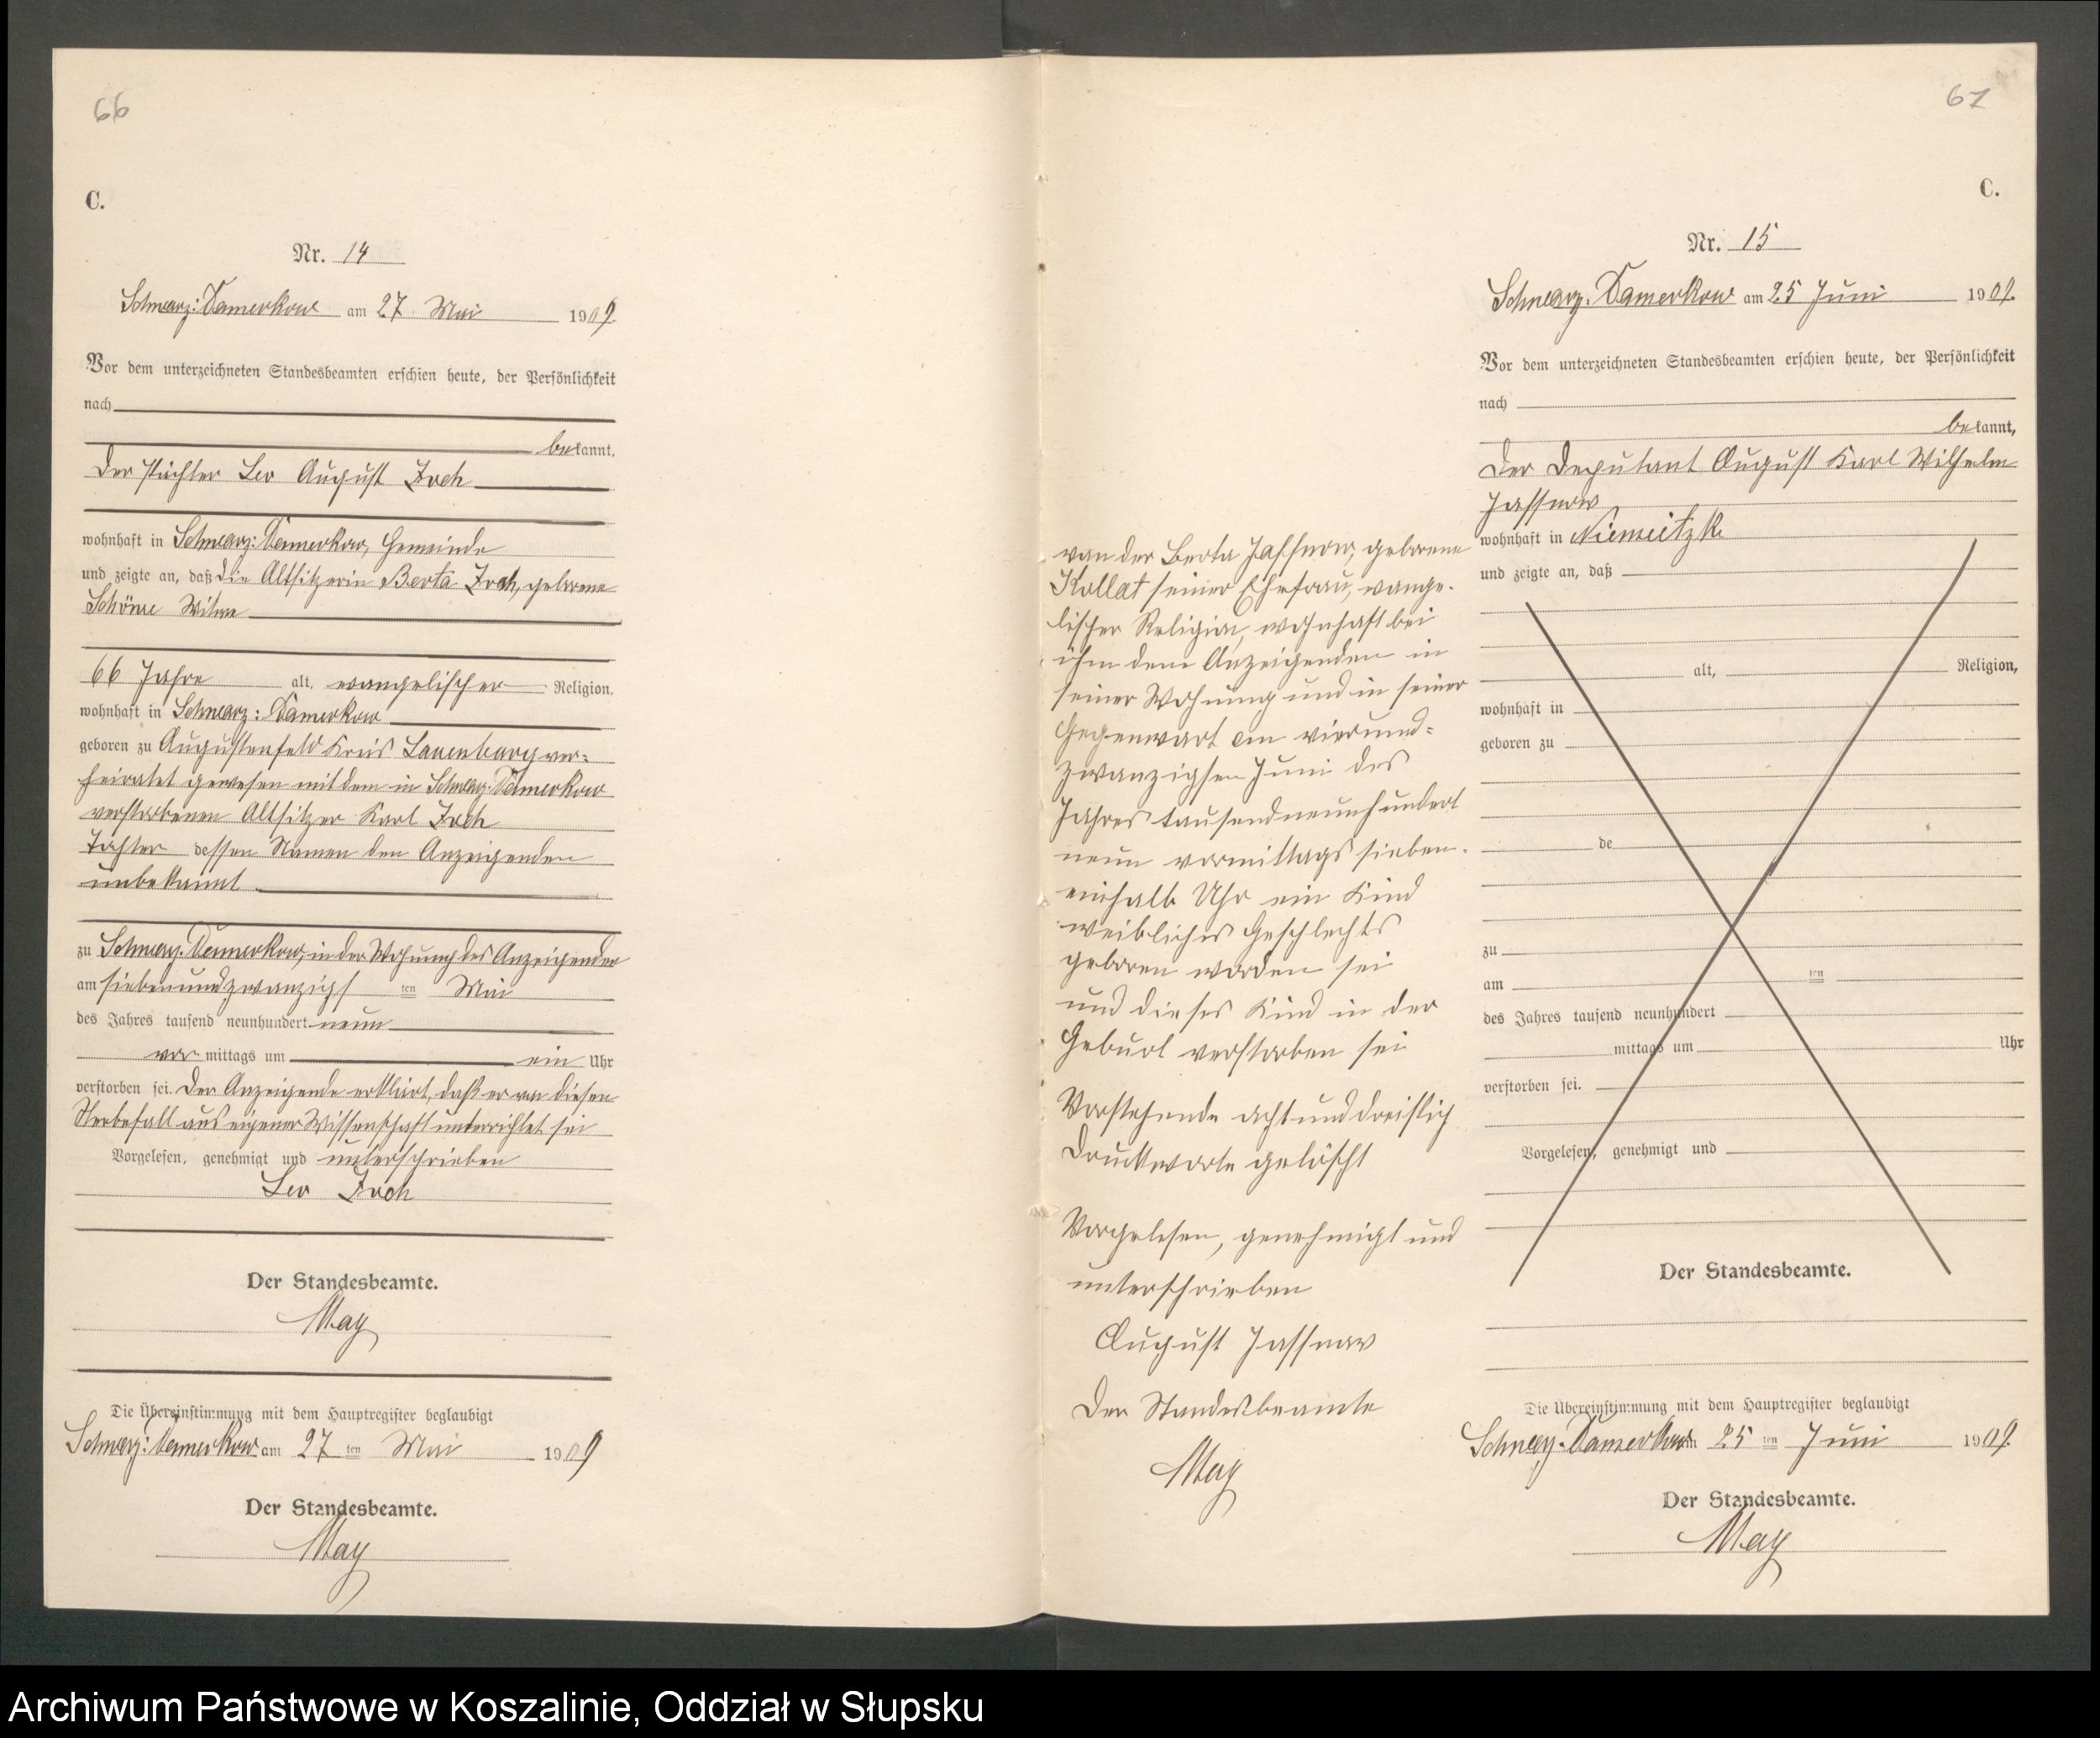 66
C.
Nr. 14
Schwarz: Damerkow am 27. Mai 1909
Vor dem unterzeichneten Standesbeamten erschien heute, der Persönlichkeit
nach
bekannt,
der Pächter Leo August Zoch
wohnhaft in Schwarz: Damerkow, Gemeinde
und zeigte an, daß die Altsitzerin Berta Zoch, geborene
Schönne Witwe
66 Jahre alt, evangelischer Religion,
wohnhaft in Schwarz: Damerkow
geboren zu Augustenfeld Kreis Lauenburg ver-
heiratet gewesen mit dem in Schwarz: Damerkow
verstorbenen Altsitzer Karl Zoch
Tochter dessen Namen den Anzeigenden
unbekannt
zu Schwarz. Damerkow, in der Wohnung des Anzeigenden
am siebenundzwanzigs ten Mai
des Jahres tausend neunhundert neun
vor mittags um ein Uhr
verstorben sei. Der Anzeigende erklärt, daß er von diesen
Sterbefall aus eigener Wissenschaft unterrichtet sei
Vorgelesen, genehmigt und unterschrieben
Leo Zoch
Der Standesbeamte.
May
Die Übereinstimmung mit dem Hauptregister beglaubigt
Schwarz: Damerkow am 27 ten Mai 1909
Der Standesbeamte.
May
67
C.
Nr. 15
Schwarz. Damerkow am 25 Juni 1909.
Vor dem unterzeichneten Standesbeamten erschien heute, der Persönlichkeit
nach
bekannt,
der Deputant August Karl Wilhelm
Jassnow
wohnhaft in Niemietzke
und zeigte an, daß
alt, Religion,
wohnhaft in
geboren zu
de
zu
am ten
des Jahres tausend neunhundert
mittags um Uhr
verstorben sei.
Vorgelesen, genehmigt und
Der Standesbeamte.
von der Berta Jassnow, geborene
Kollat seiner Ehefrau, evange-
lischer Religion, wohnhaft bei
ihm dem Anzeigenden in
seiner Wohnung und in seiner
Gegenwart am vierund-
zwanzigsen Juni des
Jahres tausendneunhundert
neun vormittags sieben-
einhalb Uhr ein Kind
weibliches Geschlechts
geboren worden sei
und dieses Kind in der
Geburt verstorben sei
Vorstehende achtunddreißig
Druckworte gelöscht
Vorgelesen, genehmigt und
unterschrieben
August Jassnow
Der Standesbeamte
May
Die Übereinstimmung mit dem Hauptregister beglaubigt
Schwarz. Damerkow am 25 ten Juni 1909.
Der Standesbeamte.
May
Archiwum Państwowe w Koszalinie, Oddział w Słupsku